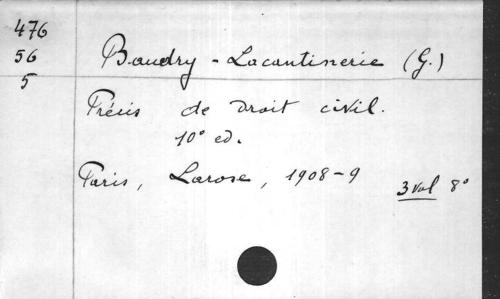 476
56
5
Baudry - Lacantinerie (G.)
Précis de Droit civil.
10° ed.
Paris, Larose, 1908-9
3 vol 8°